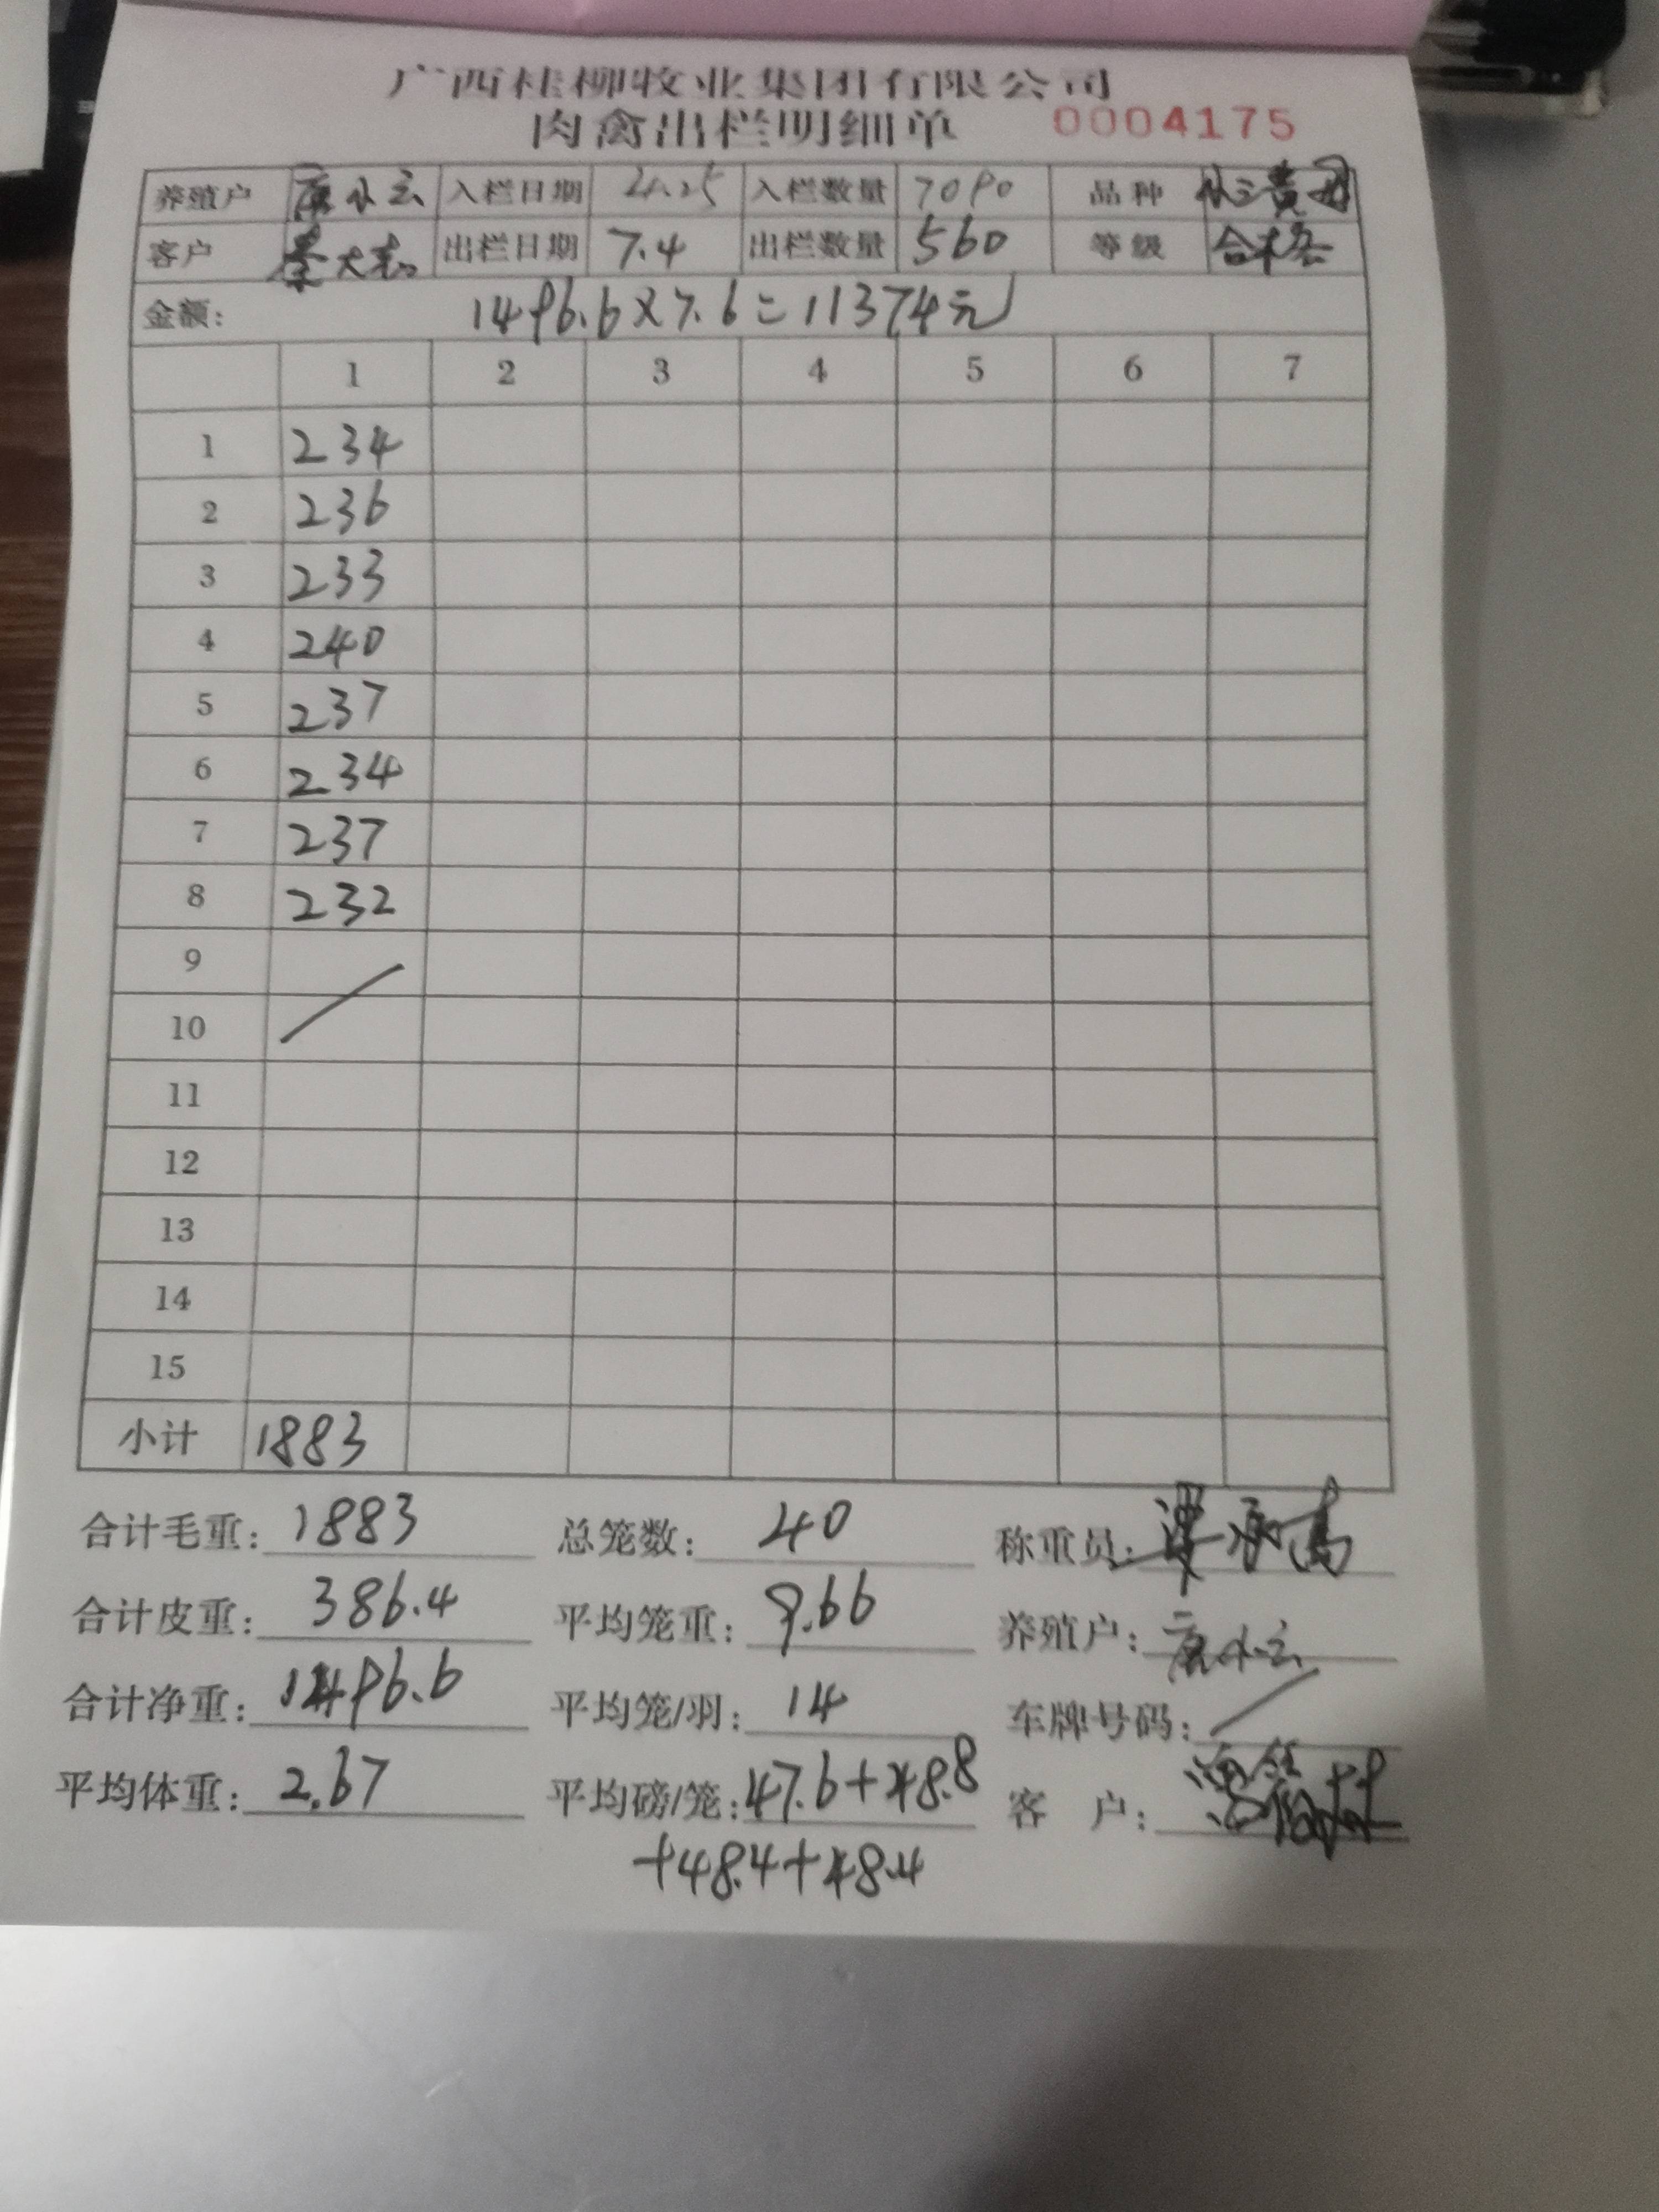 广西桂柳牧业集团有限公司
肉禽出栏明细单 0004175
养殖户 康小云 入栏日期 入栏数量 7090 品种
客户 秦大志 出栏日期 7.4 出栏数量 560 等级 合格
金额: 1496.6×7.6=11374元
1 2 3 4 5 6 7
1 234
2 236
3 233
4 240
5 237
6 234
7 237
8 232
9
10
11
12
13
14
15
小计 1883
合计毛重: 1883 总笼数: 40 称重员:
合计皮重: 386.4 平均笼重: 9.66 养殖户: 康小云
合计净重: 1496.6 平均笼/羽: 14 车牌号码: /
平均体重: 2.67 平均磅/笼: 47.6+48.8 客 户:
+48.4+48.4